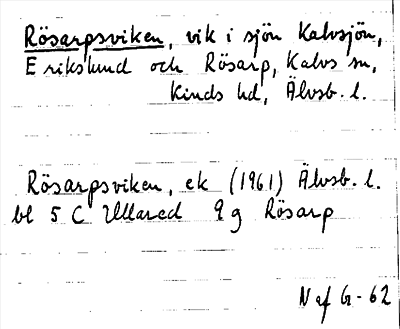 Rösarpsviken, vik i sjön Kalvsjön,
Erikslund och Rösarp, Kalvs sn,
Kinds hd, Älvsb. l.
Rösarpsviken, ek (1961) Älvsb. l.
bl 5 C Ullared 9 g Rösarp
N af G - 62